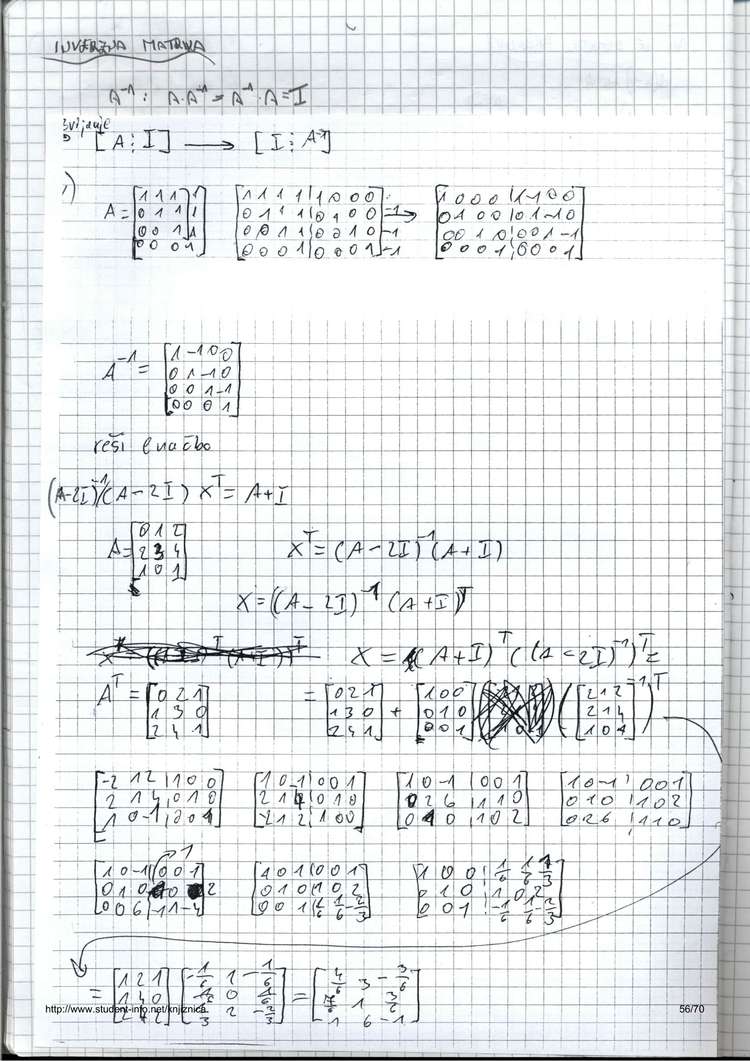 INVERZNA MATRIKA
A⁻¹ : A·A⁻¹ = A⁻¹·A = I
[A ⋮ I] → [I ⋮ A⁻¹]
1) A = [1 1 1 1; 0 1 1 1; 0 0 1 1; 0 0 0 1] [1 1 1 1 | 1 0 0 0; 0 1 1 1 | 0 1 0 0; 0 0 1 1 | 0 0 1 0; 0 0 0 1 | 0 0 0 1] -1 -1 -1 → [1 0 0 0 | 1 -1 0 0; 0 1 0 0 | 0 1 -1 0; 0 0 1 0 | 0 0 1 -1; 0 0 0 1 | 0 0 0 1]
A⁻¹ = [1 -1 0 0; 0 1 -1 0; 0 0 1 -1; 0 0 0 1]
reši enačbo
(A-2I)⁻¹/(A-2I) Xᵀ = A+I
A = [0 1 2; 2 3 4; 1 0 1] Xᵀ = (A-2I)⁻¹(A+I)
X = ((A-2I)⁻¹ (A+I))ᵀ
X = (A+I)ᵀ((A-2I)⁻¹)ᵀ =
Aᵀ = [0 2 1; 1 3 0; 2 4 1] = [0 2 1; 1 3 0; 2 4 1] + [1 0 0; 0 1 0; 0 0 1] ([2 1 2; 2 1 4; 1 0 1]⁻¹)ᵀ
[-2 1 2 | 1 0 0; 2 1 4 | 0 1 0; 1 0 -1 | 0 0 1] [1 0 -1 | 0 0 1; 2 1 4 | 0 1 0; -2 1 2 | 1 0 0] [1 0 -1 | 0 0 1; 0 2 6 | 1 1 0; 0 1 0 | 1 0 2] [1 0 -1 | 0 0 1; 0 1 0 | 1 0 2; 0 2 6 | 1 1 0]
[1 0 -1 | 0 0 1; 0 1 0 | 1 0 2; 0 0 6 | -1 1 -4] [1 0 1 | 0 0 1; 0 1 0 | 1 0 2; 0 0 1 | -1/6 1/6 -2/3] [1 0 0 | 1/6 1/6 1/3; 0 1 0 | 1 0 2; 0 0 1 | -1/6 1/6 -2/3]
= [1 2 1; 1 4 0; 2 4 2] [-1/6 1 -1/6; 1/6 0 1/6; 1/3 2 -2/3] = [4/6 3 -3/6; 7/6 1 3/2; 1 6 -1]
http://www.student-info.net/knjiznica
56/70